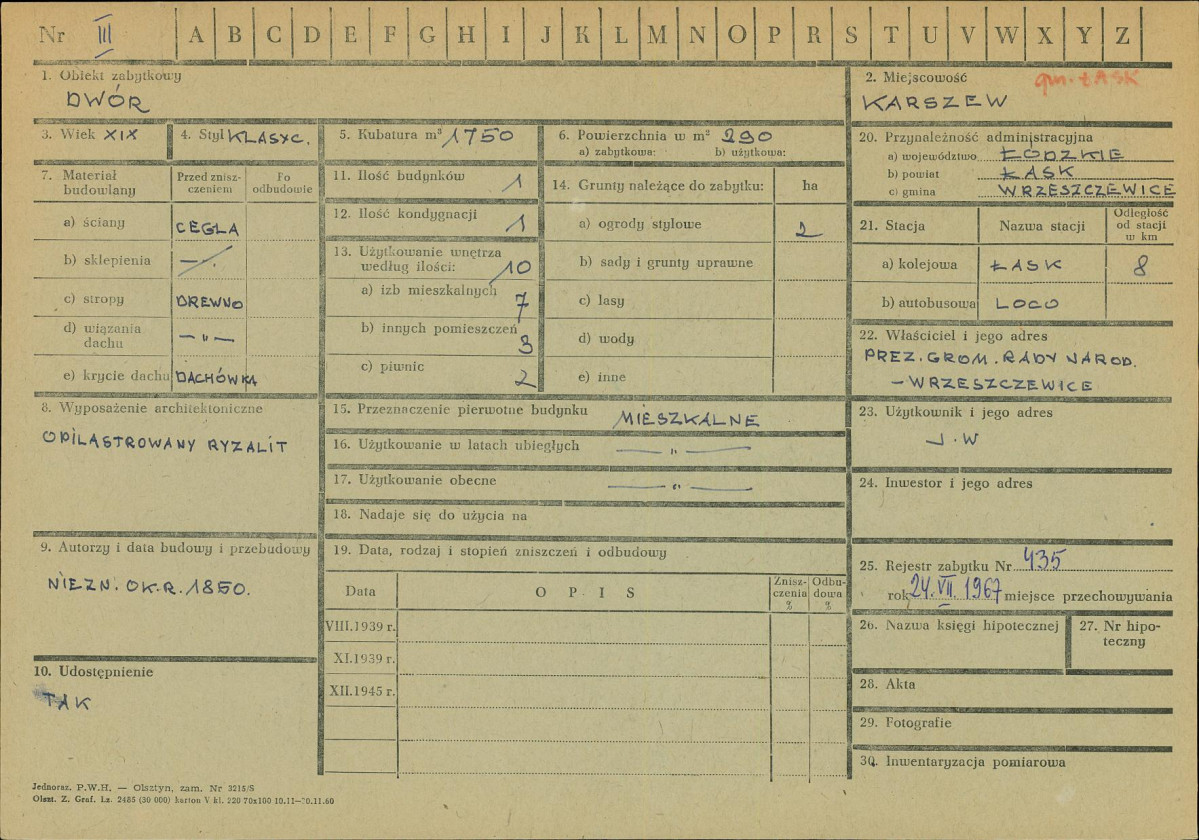 Nr III A B C D E F G H I J K L M N O P R S T U V W X Y Z
1. Obiekt zabytkowy
DWÓR
2. Miejscowość
gm. ŁASK
KARSZEW
3. Wiek XIX
4. Styl KLASYC.
5. Kubatura m³ 1750
6. Powierzchnia w m² 290
a) zabytkowa: b) użytkowa:
7. Materiał budowlany
Przed znisz-
czeniem
Po
odbudowie
a) ściany CEGŁA
b) sklepienia —
c) stropy DREWNO
d) wiązania
dachu — „ —
e) krycie dachu DACHÓWKA
8. Wyposażenie architektoniczne
OPILASTROWANY RYZALIT
9. Autorzy i data budowy i przebudowy
NIEZN. OK. R. 1850.
10. Udostępnienie
TAK
11. Ilość budynków 1
12. Ilość kondygnacji 1
13. Użytkowanie wnętrza
według ilości: 10
a) izb mieszkalnych 7
b) innych pomieszczeń 3
c) piwnic 2
14. Grunty należące do zabytku: ha
a) ogrody stylowe 2
b) sady i grunty uprawne
c) lasy
d) wody
e) inne
15. Przeznaczenie pierwotne budynku MIESZKALNE
16. Użytkowanie w latach ubiegłych — „ —
17. Użytkowanie obecne — „ —
18. Nadaje się do użycia na
19. Data, rodzaj i stopień zniszczeń i odbudowy
Data
O P I S
Znisz-
czenia
%
Odbu-
dowa
%
VIII.1939 r.
XI.1939 r.
XII.1945 r.
20. Przynależność administracyjna
a) województwo ŁÓDZKIE
b) powiat ŁASK
c) gmina WRZESZCZEWICE
21. Stacja
Nazwa stacji
Odległość
od stacji
w km
a) kolejowa ŁASK 8
b) autobusowa LOCO
22. Właściciel i jego adres
PREZ. GROM. RADY NAROD.
— WRZESZCZEWICE
23. Użytkownik i jego adres
J. W
24. Inwestor i jego adres
25. Rejestr zabytku Nr 435
rok 24. VII. 1967 miejsce przechowywania
26. Nazwa księgi hipotecznej
27. Nr hipo-
teczny
28. Akta
29. Fotografie
30. Inwentaryzacja pomiarowa
Jednoraz. P.W.H. — Olsztyn, zam. Nr 3215/S
Olszt. Z. Graf. Lz. 2485 (30 000) karton V kl. 220 70x100 10.11—20.11.60